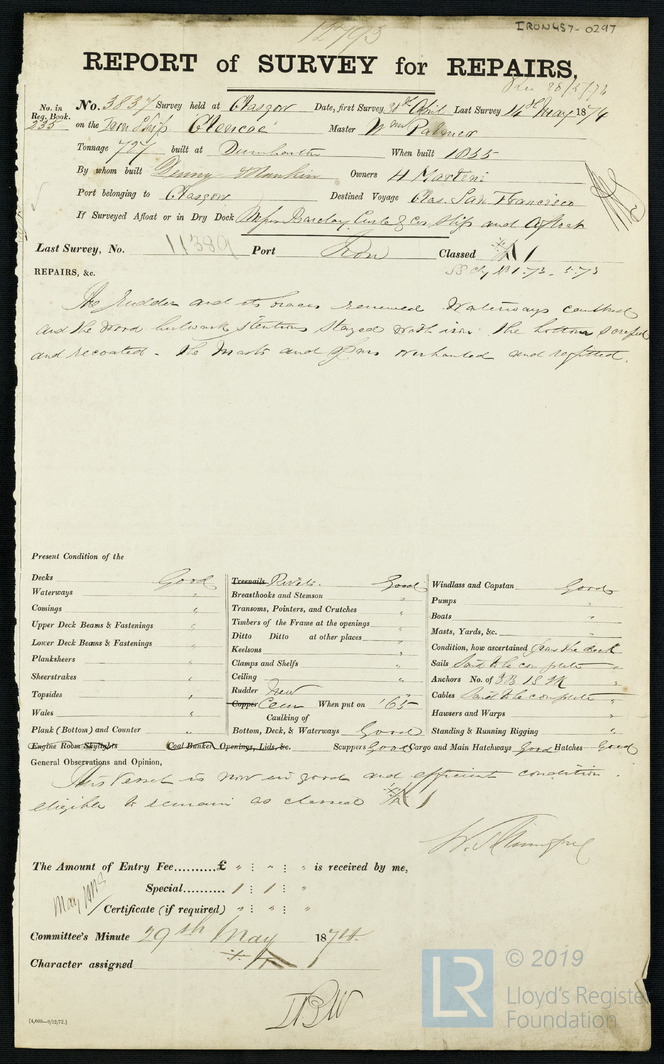 12793
IRON457-0297
REPORT of SURVEY for REPAIRS,
No. in Reg. Book. 235
No. 3837 Survey held at Glasgow Date, first Survey April Last Survey 14th May 1874
on the Ship Glencoe Master Wm Palmer
Tonnage 727 built at Dumbarton When built 1855
By whom built Denny & Rankin Owners H Martini
Port belonging to Glasgow Destined Voyage San Francisco
If Surveyed Afloat or in Dry Dock Messrs Barclay Curle & Cos Slip and Afloat
Last Survey, No. 11389 Port Iron Classed A 1
REPAIRS, &c.
The rudder and its braces renewed Waterways caulked
and the wood bulwark stantions stayed with iron. The bottom scraped
and recoated. The masts and spars overhauled and refitted.
Present Condition of the
Decks Good
Waterways "
Comings "
Upper Deck Beams & Fastenings "
Lower Deck Beams & Fastenings "
Planksheers "
Sheerstrakes "
Topsides "
Wales "
Plank (Bottom) and Counter "
Engine Room Skylights
Treenails Rivets. Good
Breasthooks and Stemson "
Transoms, Pointers, and Crutches "
Timbers of the Frame at the openings "
Ditto Ditto at other places "
Keelsons "
Clamps and Shelfs "
Ceiling "
Rudder New
Copper Cem When put on '65
Caulking of
Bottom, Deck, & Waterways Good
Coal Bunker Openings, Lids, &c. Scuppers Good Cargo and Main Hatchways Good Hatches Good
Windlass and Capstan Good
Pumps "
Boats "
Masts, Yards, &c. "
Condition, how ascertained from the deck
Sails Said to be complete "
Anchors No. of 3B 1S 1K "
Cables Said to be complete "
Hawsers and Warps "
Standing & Running Rigging "
General Observations and Opinion,
This Vessel is now in good and efficient condition.
eligible to remain as classed A 1
The Amount of Entry Fee..........£ " : " : " is received by me,
Special.......... 1 : 1 : "
Certificate (if required) " : " : "
Committee's Minute 29th May 1874.
Character assigned
[4,000—9/12/72.]
LR © 2019
Lloyd's Register
Foundation